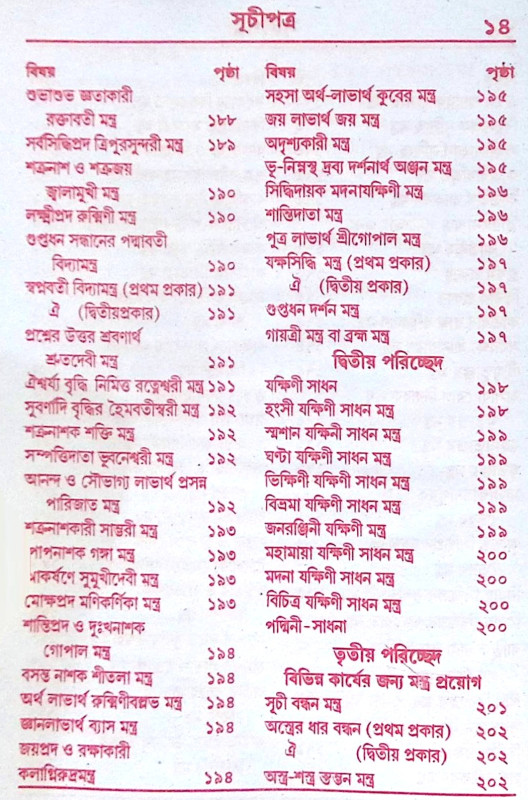 সূচীপত্র ১৪
বিষয় পৃষ্ঠা
শুভাশুভ জ্ঞতাকারী
রক্তাবতী মন্ত্র ১৮৮
সর্বসিদ্ধিপ্রদ ত্রিপুরসুন্দরী মন্ত্র ১৮৯
শত্রুনাশ ও শত্রুজয়
জ্বালামুখী মন্ত্র ১৯০
লক্ষ্মীপ্রদ রুক্মিণী মন্ত্র ১৯০
গুপ্তধন সন্ধানের পদ্মাবতী
বিদ্যামন্ত্র ১৯০
স্বপ্নবতী বিদ্যামন্ত্র (প্রথম প্রকার) ১৯১
ঐ (দ্বিতীয়প্রকার) ১৯১
প্রশ্নের উত্তর শ্রবণার্থ
শ্রুতদেবী মন্ত্র ১৯১
ঐশ্বর্য্য বৃদ্ধি নিমিত্ত রত্নেশ্বরী মন্ত্র ১৯১
সুবর্ণাদি বৃদ্ধির হৈমবতীস্বরী মন্ত্র ১৯২
শত্রুনাশক শক্তি মন্ত্র ১৯২
সম্পত্তিদাতা ভুবনেশ্বরী মন্ত্র ১৯২
আনন্দ ও সৌভাগ্য লাভার্থ প্রসন্ন
পারিজাত মন্ত্র ১৯২
শত্রুনাশকারী সান্তরী মন্ত্র ১৯৩
পাপনাশক গঙ্গা মন্ত্র ১৯৩
াকর্ষণে সুমুখীদেবী মন্ত্র ১৯৩
মোক্ষপ্রদ মণিকর্ণিকা মন্ত্র ১৯৩
শান্তিপ্রদ ও দুঃখনাশক
গোপাল মন্ত্র ১৯৪
বসন্ত নাশক শীতলা মন্ত্র ১৯৪
অর্থ লাভার্থ রুক্মিণীবল্লভ মন্ত্র ১৯৪
জ্ঞানলাভার্থ ব্যাস মন্ত্র ১৯৪
জয়প্রদ ও রক্ষাকারী
কলাগ্নিরুদ্রমন্ত্র ১৯৪
বিষয় পৃষ্ঠা
সহসা অর্থ-লাভার্থ কুবের মন্ত্র ১৯৫
জয় লাভার্থ জয় মন্ত্র ১৯৫
অদৃশ্যকারী মন্ত্র ১৯৫
ভূ-নিম্নস্থ দ্রব্য দর্শনার্থ অঞ্জন মন্ত্র ১৯৫
সিদ্ধিদায়ক মদনাযক্ষিণী মন্ত্র ১৯৬
শান্তিদাতা মন্ত্র ১৯৬
পুত্র লাভার্থ শ্রীগোপাল মন্ত্র ১৯৬
যক্ষসিদ্ধি মন্ত্র (প্রথম প্রকার) ১৯৭
ঐ (দ্বিতীয় প্রকার) ১৯৭
গুপ্তধন দর্শন মন্ত্র ১৯৭
গায়ত্রী মন্ত্র বা ব্রহ্ম মন্ত্র ১৯৭
দ্বিতীয় পরিচ্ছেদ
যক্ষিণী সাধন ১৯৮
হংসী যক্ষিণী সাধন মন্ত্র ১৯৮
স্মশান যক্ষিনী সাধন মন্ত্র ১৯৯
ঘণ্টা যক্ষিণী সাধন মন্ত্র ১৯৯
ভিক্ষিণী যক্ষিণী সাধন মন্ত্র ১৯৯
বিভ্রমা যক্ষিণী সাধন মন্ত্র ১৯৯
জনরঞ্জিনী যক্ষিণী মন্ত্র ১৯৯
মহামায়া যক্ষিণী সাধন মন্ত্র ২০০
মদনা যক্ষিণী সাধন মন্ত্র ২০০
বিচিত্র যক্ষিণী সাধন মন্ত্র ২০০
পদ্মিনী-সাধনা ২০০
তৃতীয় পরিচ্ছেদ
বিভিন্ন কার্যের জন্য মন্ত্র প্রয়োগ
সূচী বন্ধন মন্ত্র ২০১
অস্ত্রের ধার বন্ধন (প্রথম প্রকার) ২০২
ঐ (দ্বিতীয় প্রকার) ২০২
অস্ত্র-শস্ত্র স্তম্ভন মন্ত্র ২০২